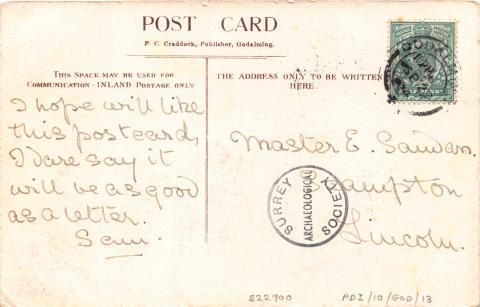 POST CARD
P. C. Craddock, Publisher, Godalming.
THIS SPACE MAY BE USED FOR
COMMUNICATION - INLAND POSTAGE ONLY
THE ADDRESS ONLY TO BE WRITTEN
HERE.
I hope will like
this postcard,
I dare say it
will be as good
as a letter.
Master E.
Lincoln.
GODALMING
HALFPENNY
SURREY
ARCHAEOLOGICAL
SOCIETY
S22900
PDI/10/GOD/13